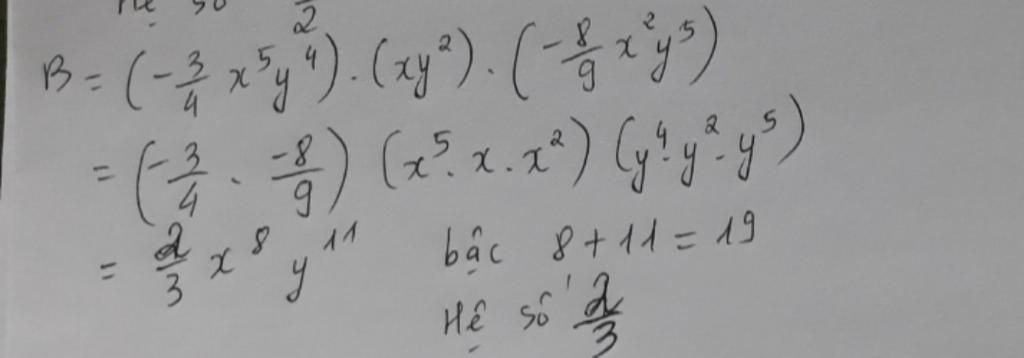 Hệ số 2
B = (-3/4 x⁵y⁴) . (xy²) . (-8/9 x²y⁵)
= (-3/4 . -8/9) (x⁵. x . x²) (y⁴. y² . y⁵)
= 2/3 x⁸ y¹¹ bậc 8 + 11 = 19
Hệ số 2/3